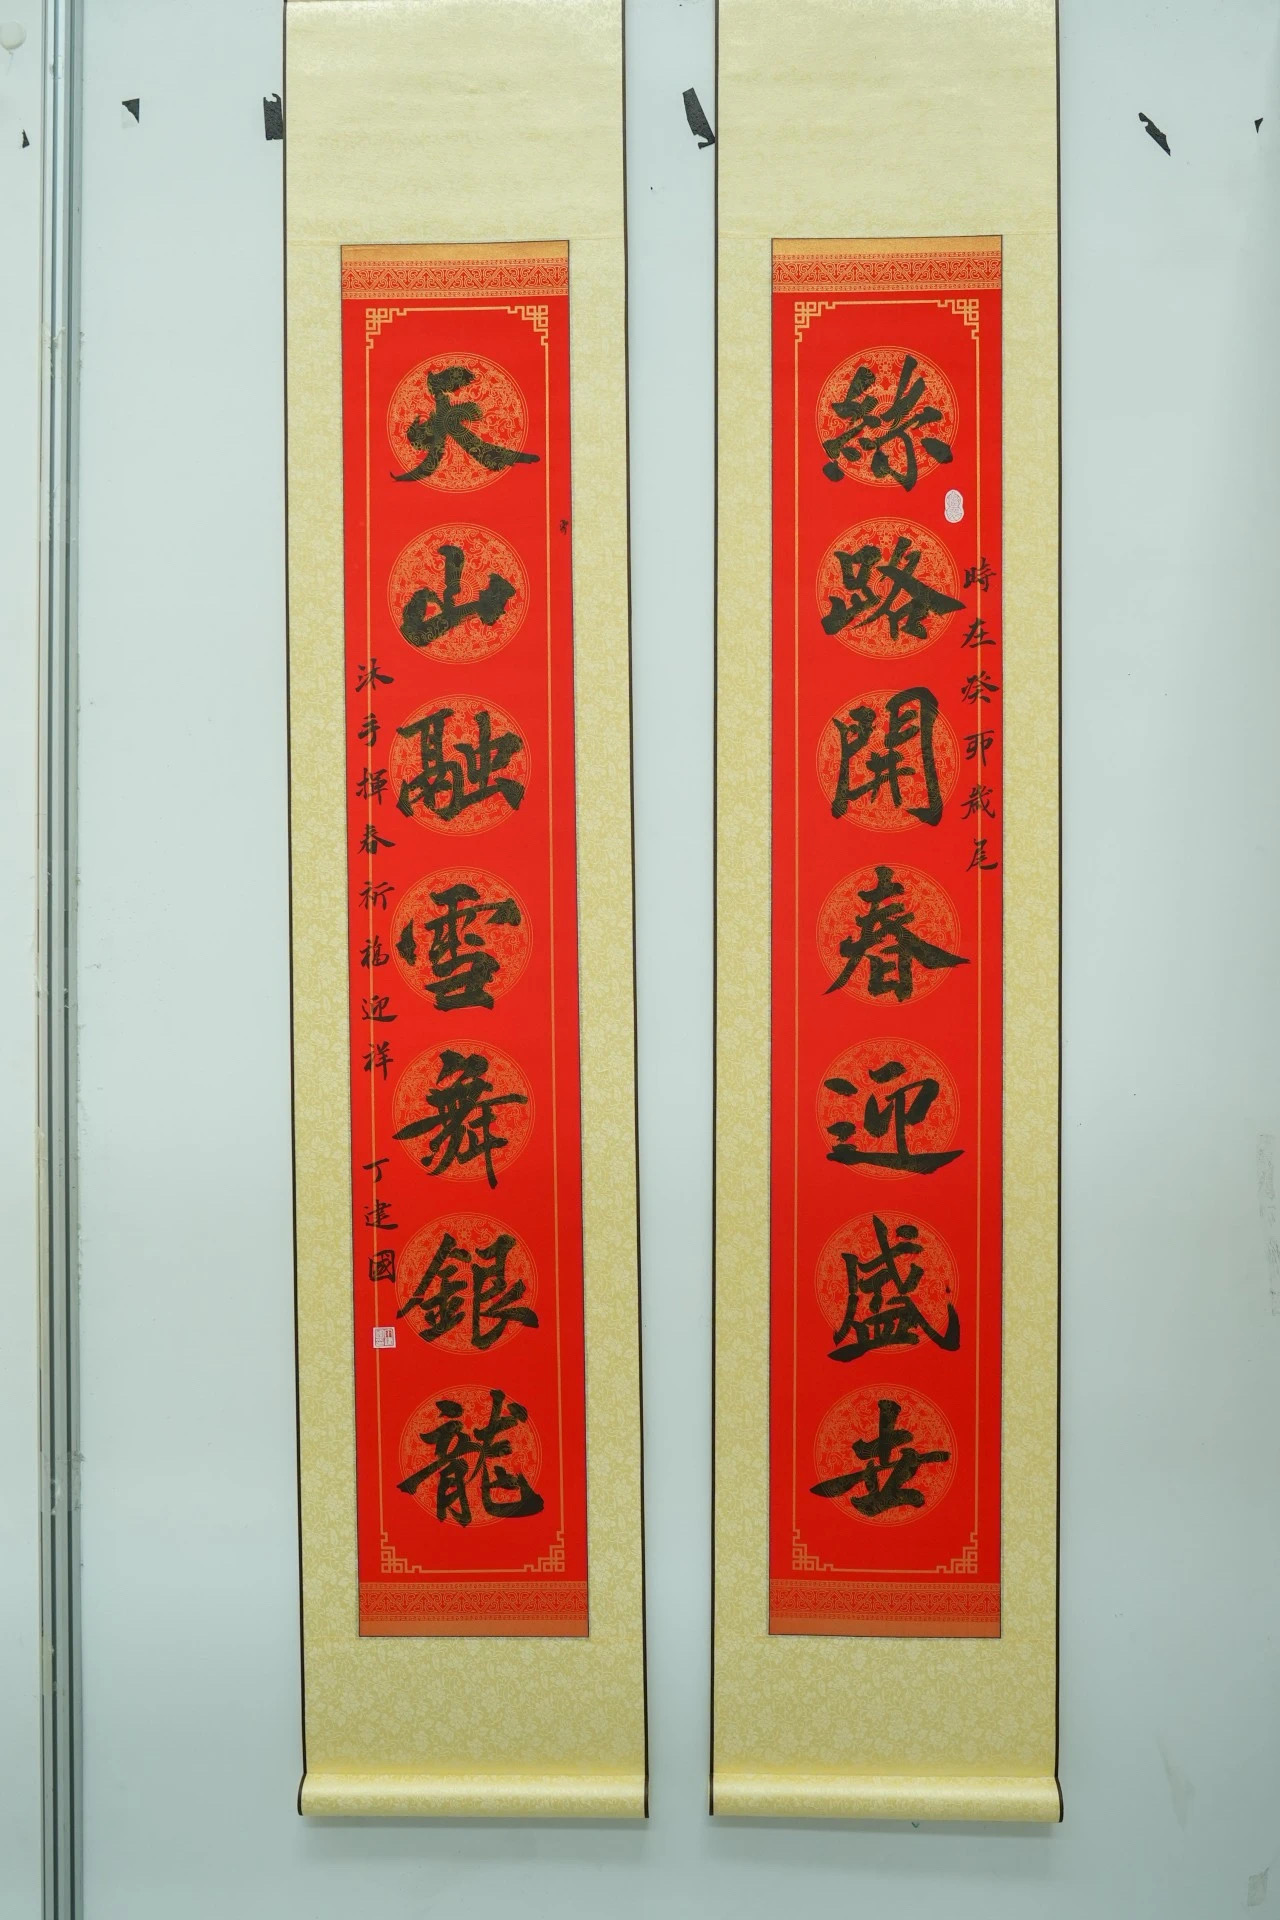 絲路開春迎盛世
時在癸卯歲尾
天山融雪舞銀龍
沐手揮春祈福迎祥 丁建國